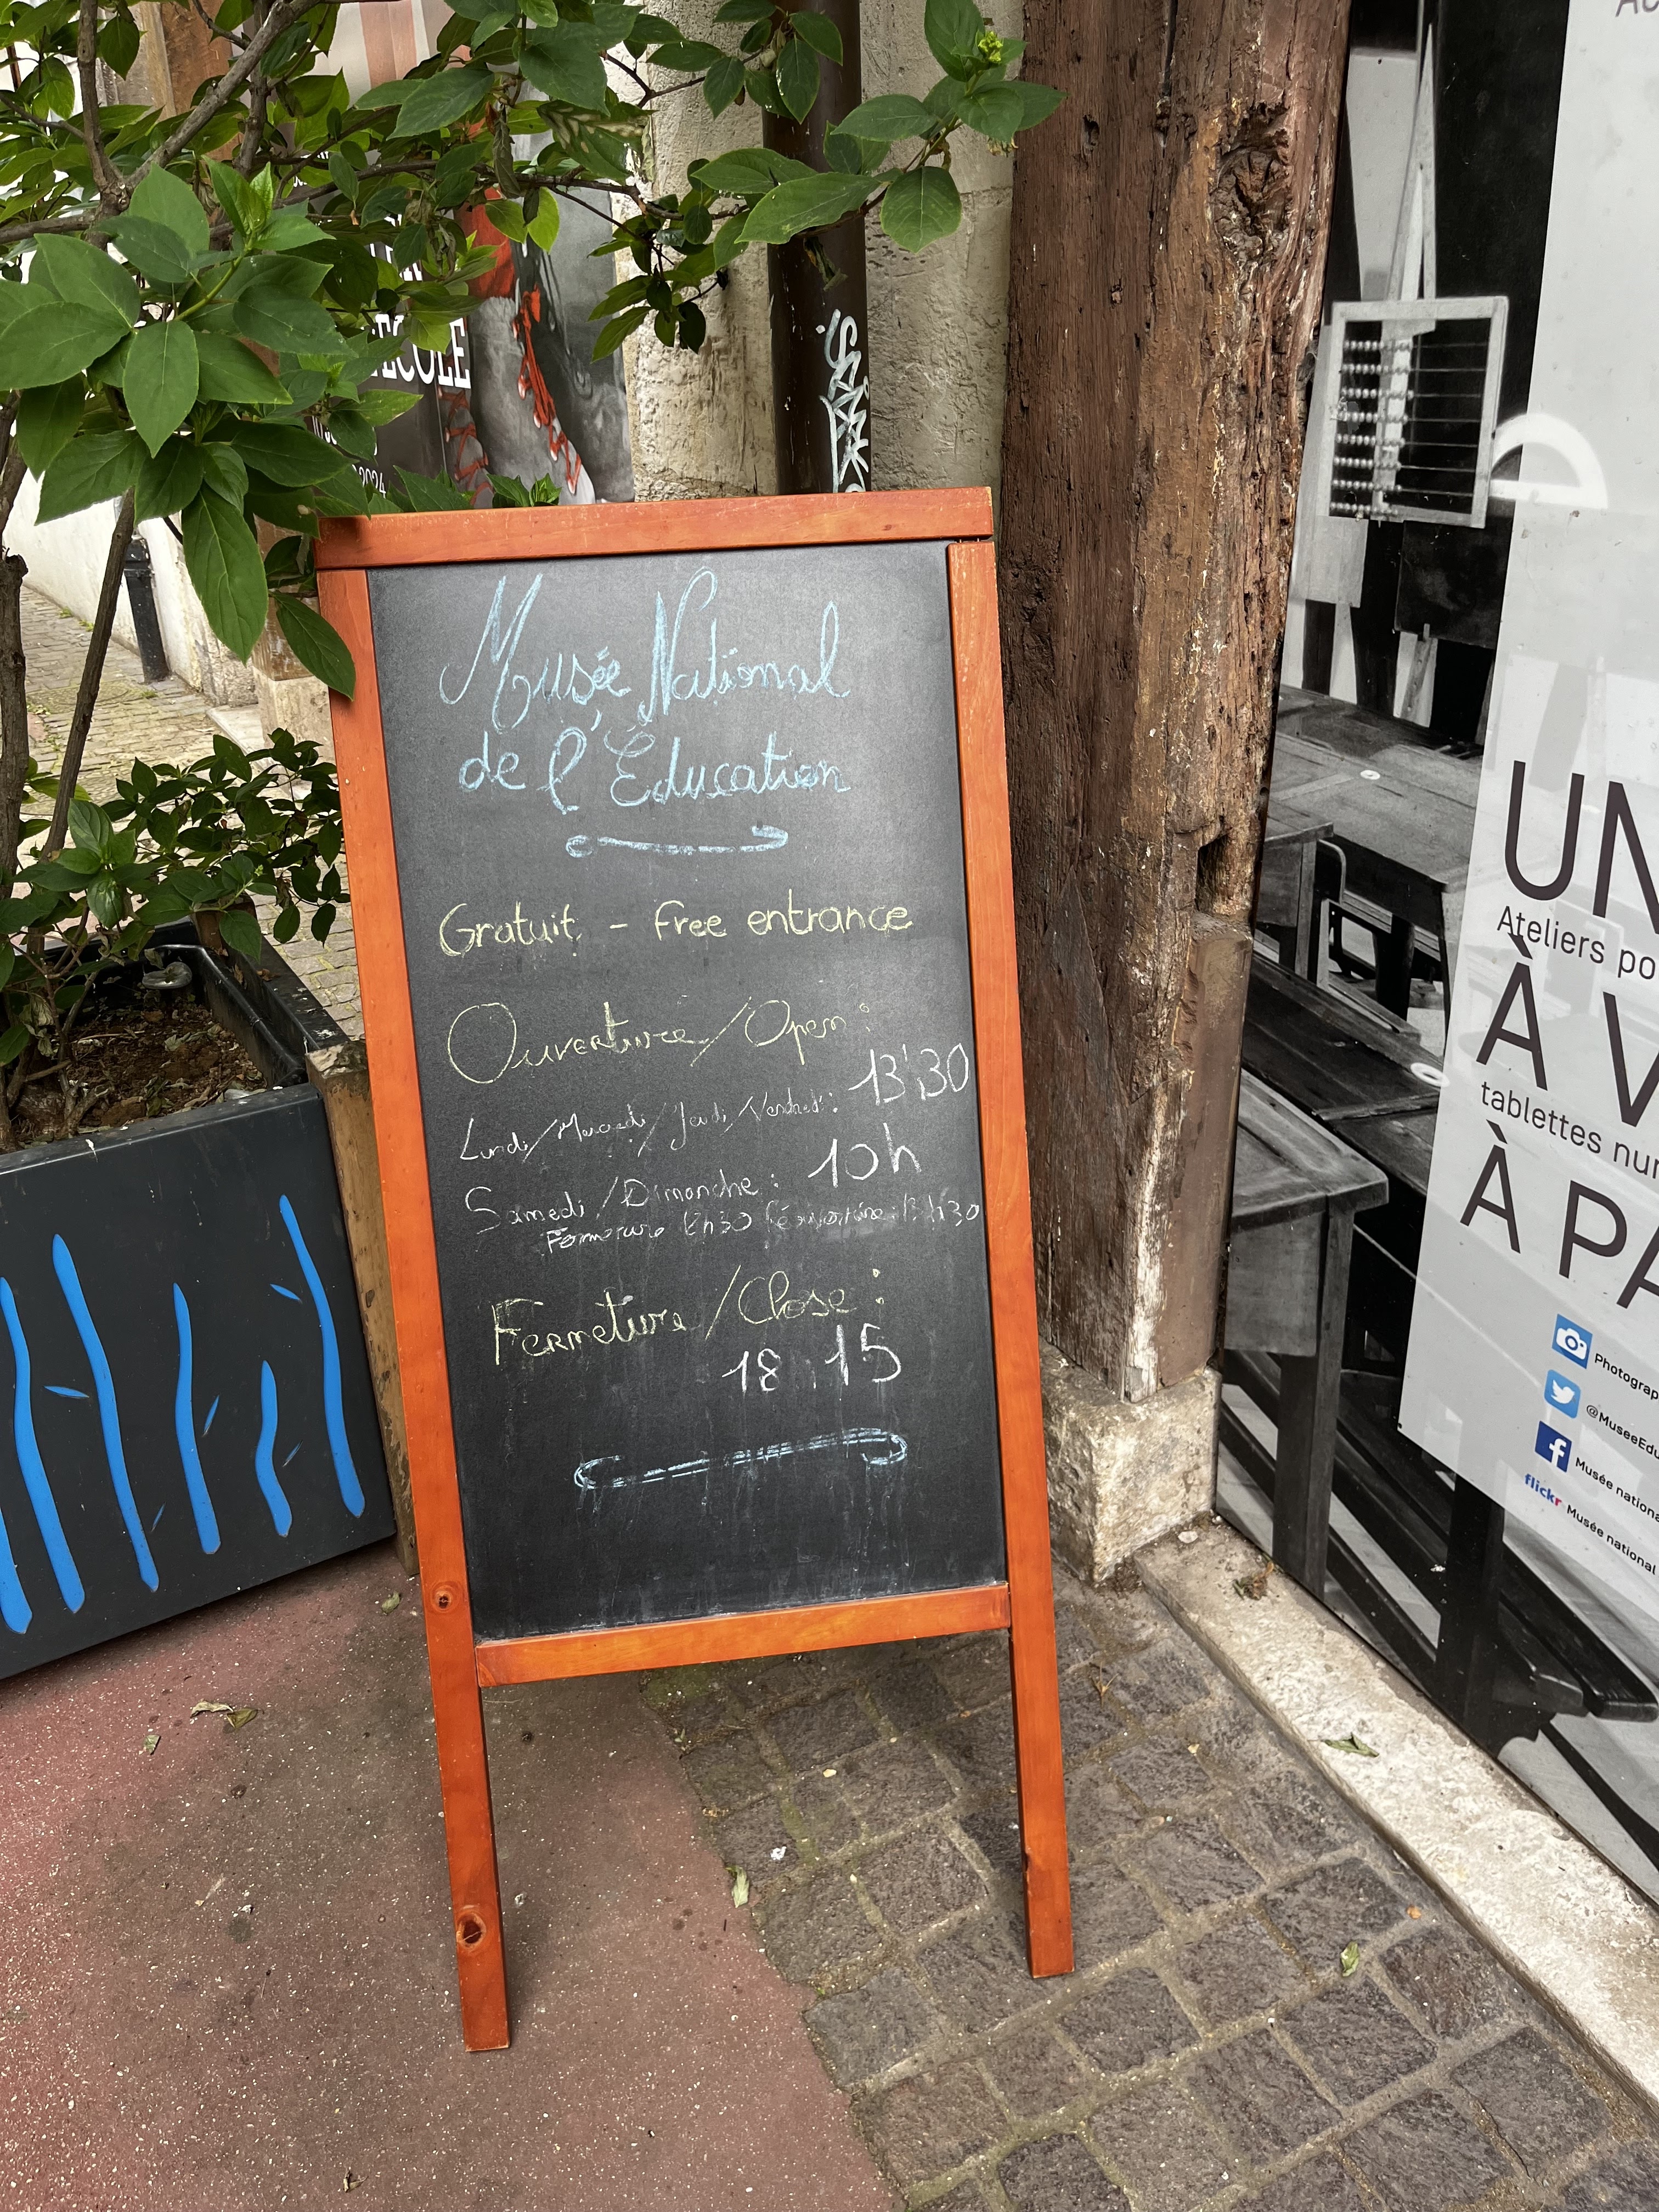 Musée National
de l'Éducation
Gratuit - free entrance
Ouverture/Open :
Lundi/Mercredi/Jeudi/Vendredi : 13:30
Samedi/Dimanche : 10h
Fermeture 12h30 Réouverture : 13h30
Fermeture/Close :
18:15
L'ECOLE
2024
UN
Ateliers po
À V
tablettes nu
À PA
Photograp
@MuseeEdu
Musée nationa
flickr Musée national